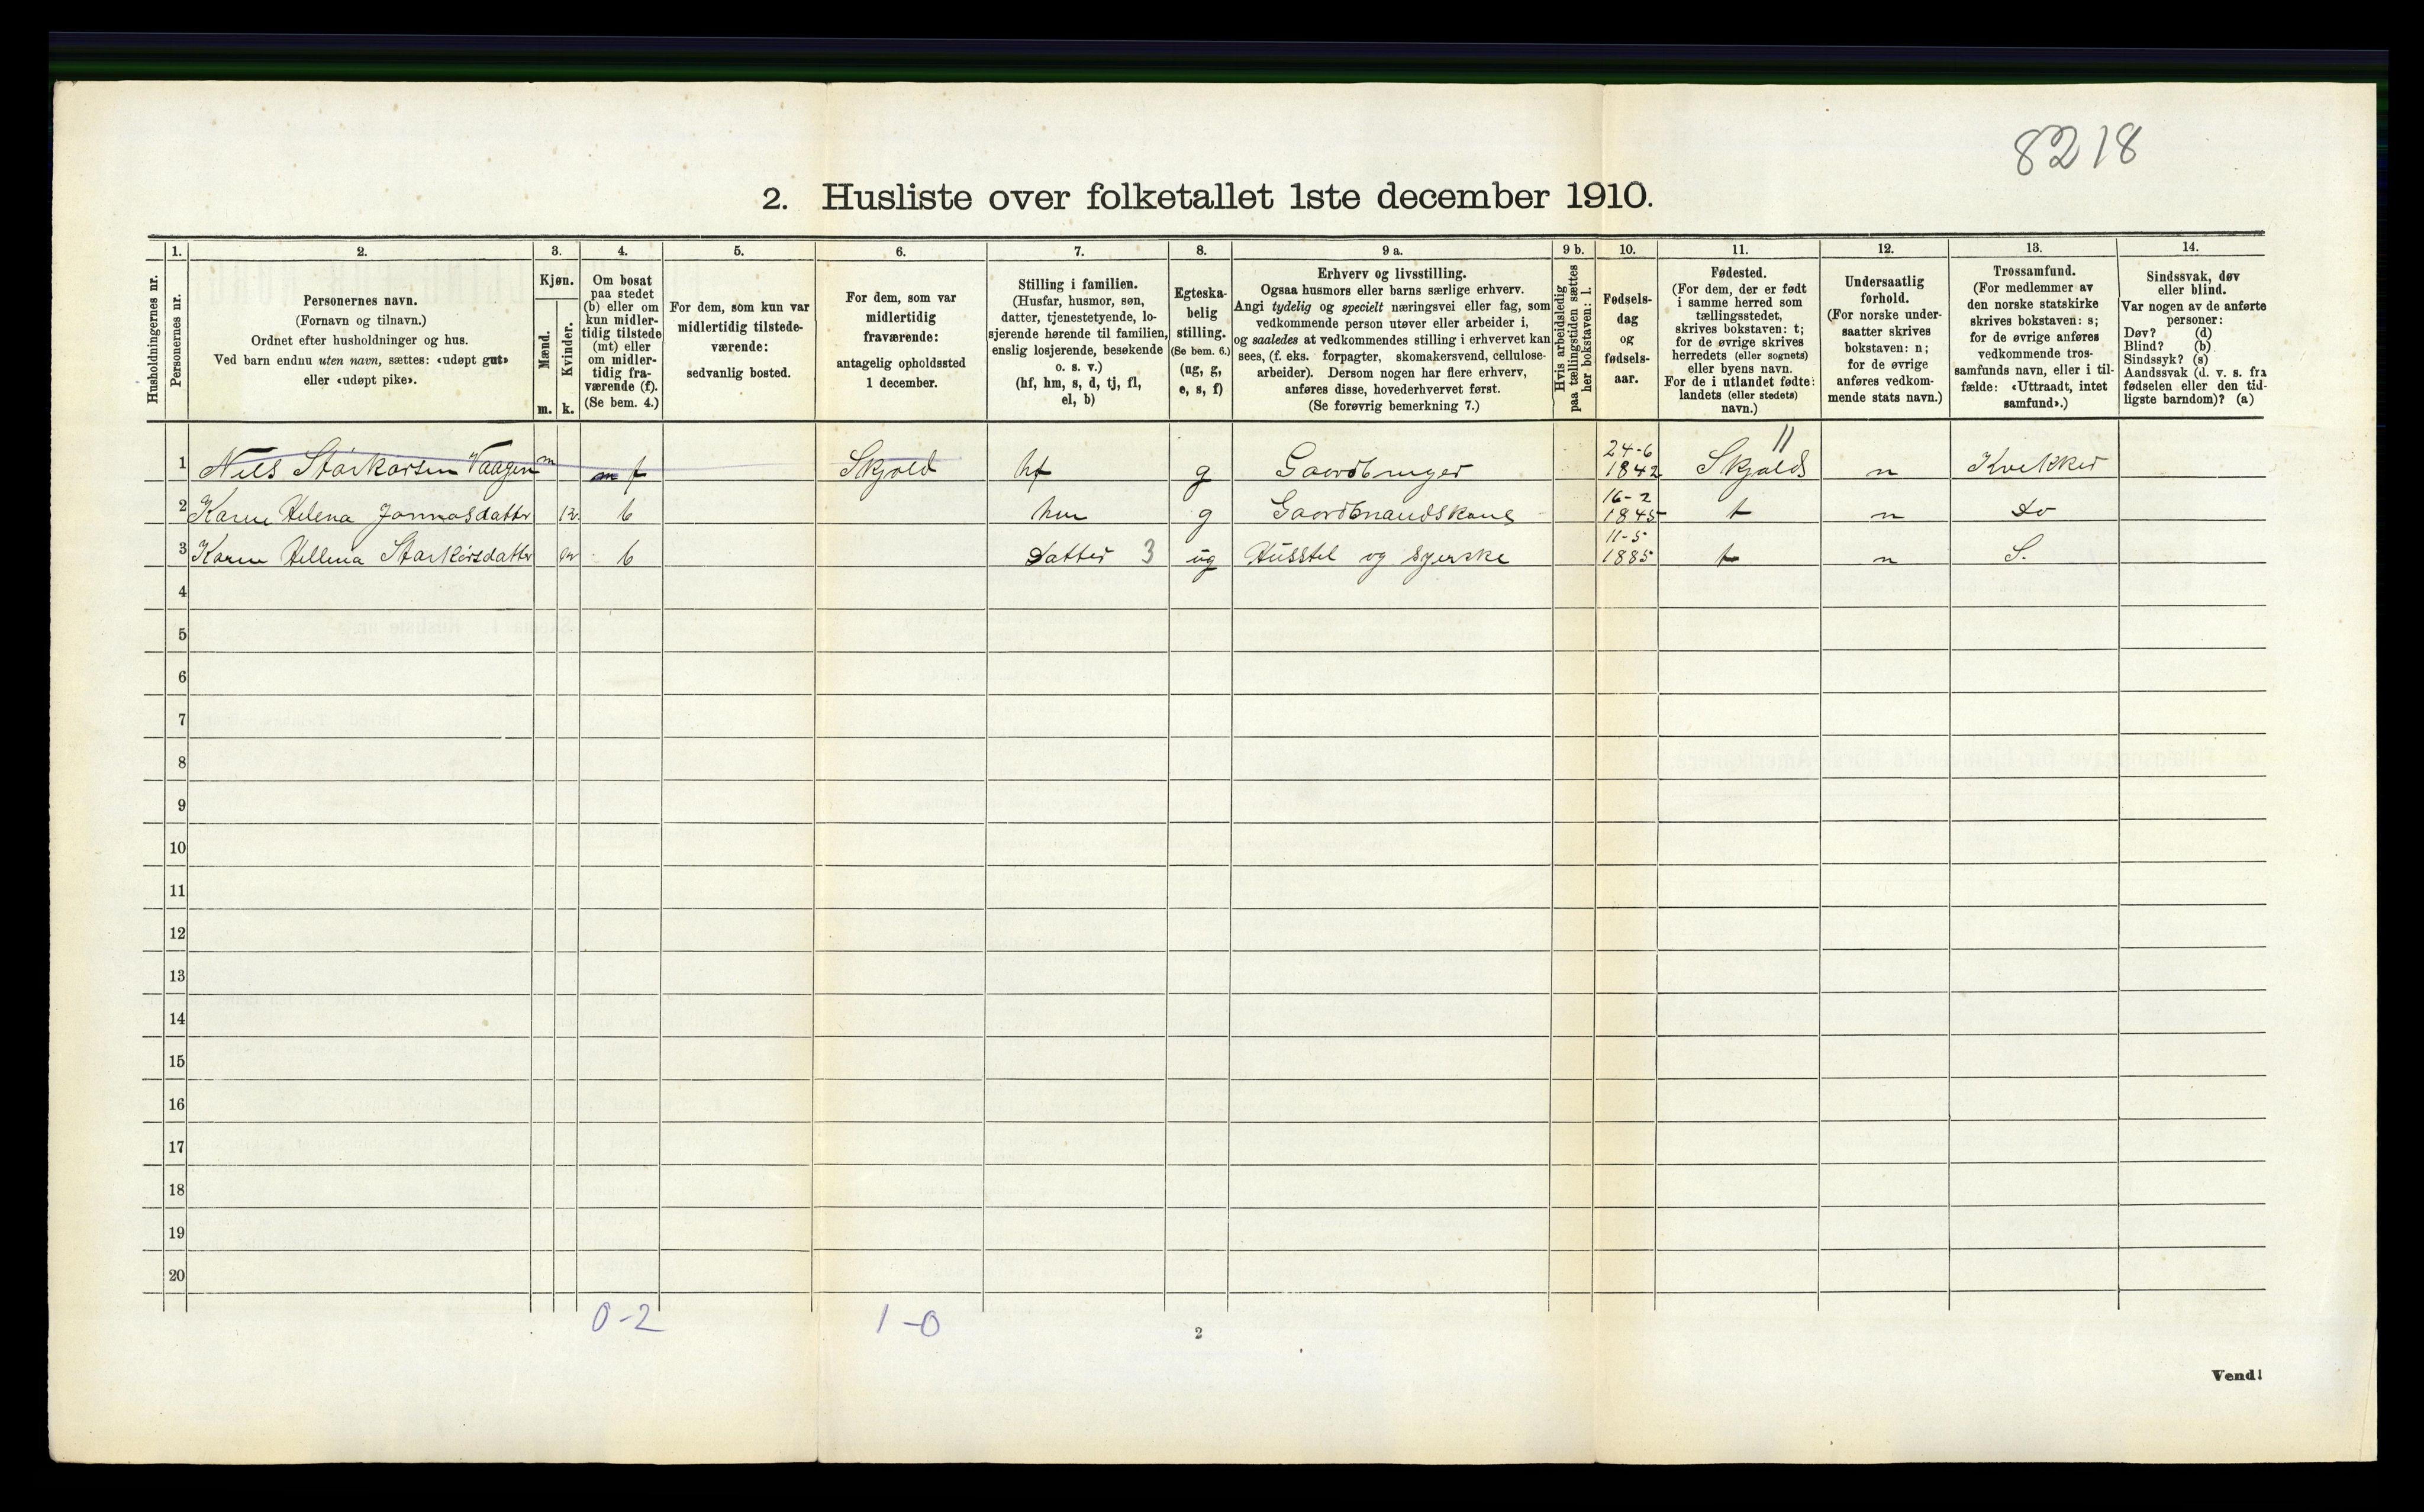 8218
2. Husliste over folketallet 1ste december 1910.
1. 2. 3. 4. 5. 6. 7. 8. 9 a. 9 b. 10. 11. 12. 13. 14.
Husholdningernes nr.
Personernes nr.
Personernes navn.
(Fornavn og tilnavn.)
Ordnet efter husholdninger og hus.
Ved barn endnu uten navn, sættes: «udøpt gut»
eller «udøpt pike».
Kjøn.
Mænd.
Kvinder.
m. k.
Om bosat
paa stedet
(b) eller om
kun midler-
tidig tilstede
(mt) eller
om midler-
tidig fra-
værende (f).
(Se bem. 4.)
For dem, som kun var
midlertidig tilstede-
værende:
sedvanlig bosted.
For dem, som var
midlertidig
fraværende:
antagelig opholdssted
1 december.
Stilling i familien.
(Husfar, husmor, søn,
datter, tjenestetyende, lo-
sjerende hørende til familien,
enslig losjerende, besøkende
o. s. v.)
(hf, hm, s, d, tj, fl,
el, b)
Egteska-
belig
stilling.
(Se bem. 6.)
(ug, g,
e, s, f)
Erhverv og livsstilling.
Ogsaa husmors eller barns særlige erhverv.
Angi tydelig og specielt næringsvei eller fag, som
vedkommende person utøver eller arbeider i,
og saaledes at vedkommendes stilling i erhvervet kan
sees, (f. eks. forpagter, skomakersvend, cellulose-
arbeider). Dersom nogen har flere erhverv,
anføres disse, hovederhvervet først.
(Se forøvrig bemerkning 7.)
Hvis arbeidsledig
paa tællingstiden sættes
her bokstaven: l.
Fødsels-
dag
og
fødsels-
aar.
Fødested.
(For dem, der er født
i samme herred som
tællingsstedet,
skrives bokstaven: t;
for de øvrige skrives
herredets (eller sognets)
eller byens navn.
For de i utlandet fødte:
landets (eller stedets)
navn.)
Undersaatlig
forhold.
(For norske under-
saatter skrives
bokstaven: n;
for de øvrige
anføres vedkom-
mende stats navn.)
Trossamfund.
(For medlemmer av
den norske statskirke
skrives bokstaven: s;
for de øvrige anføres
vedkommende tros-
samfunds navn, eller i til-
fælde: «Uttraadt, intet
samfund».)
Sindssvak, døv
eller blind.
Var nogen av de anførte
personer:
Døv? (d)
Blind? (b)
Sindssyk? (s)
Aandssvak (d. v. s. fra
fødselen eller den tid-
ligste barndom)? (a)
1 Nils Storkorsen Vaagen m f Skjold hf g Gaardbruger 24-6 1842 Skjolds n Kvekker
2 Karen Helena Jonnasdatter k b hm g Gaardmandskone 16-2 1845 t n do
3 Karen Hellena Storkorsdatter k b Datter 3 ug Husstel og syerske 11-5 1885 t n S.
4
5
6
7
8
9
10
11
12
13
14
15
16
17
18
19
20
0-2 1-0
2
Vend!